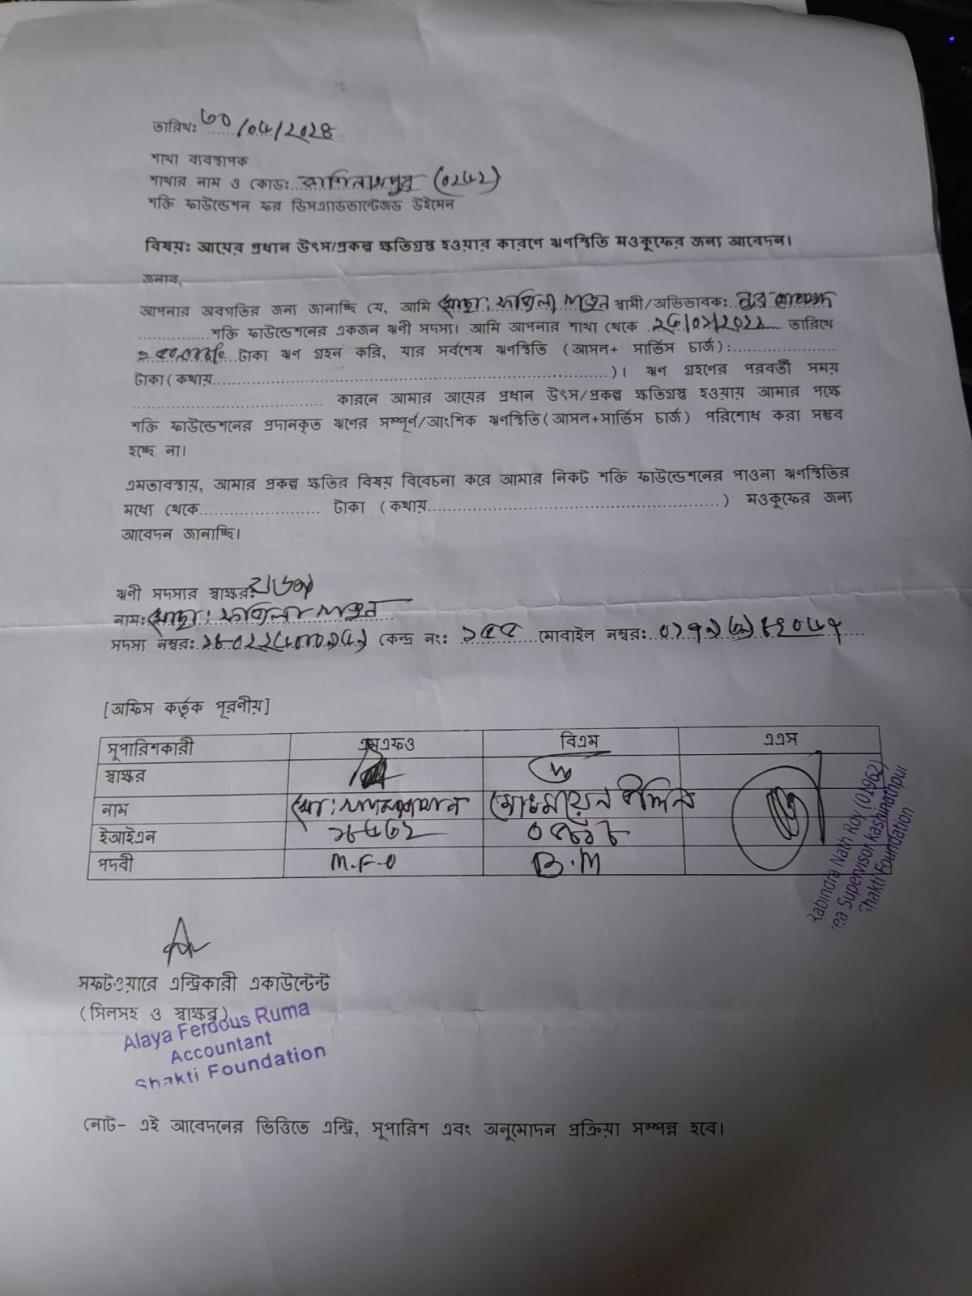 তারিখ: ৩০/০৬/২০২৪
শাখা ব্যবস্থাপক
শাখার নাম ও কোড: কাশিনাথপুর (০২৫২)
শক্তি ফাউন্ডেশন ফর ডিসএ্যাডভান্টেজড উইমেন
বিষয়: আয়ের প্রধান উৎস/প্রকল্প ক্ষতিগ্রস্থ হওয়ার কারণে ঋণস্থিতি মওকুফের জন্য আবেদন।
জনাব,
আপনার অবগতির জন্য জানাচ্ছি যে, আমি মোছা: স্বামী/অভিভাবক: নুর
শক্তি ফাউন্ডেশনের একজন ঋনী সদস্য। আমি আপনার শাখা থেকে তারিখে
টাকা ঋন গ্রহন করি, যার সর্বশেষ ঋনস্থিতি (আসল+ সার্ভিস চার্জ):....................
টাকা(কথায়................................................................)। ঋন গ্রহনের পরবর্তী সময়
.............................. কারনে আমার আয়ের প্রধান উৎস/প্রকল্প ক্ষতিগ্রস্ত হওয়ায় আমার পক্ষে
শক্তি ফাউন্ডেশনের প্রদানকৃত ঋনের সম্পূর্ন/আংশিক ঋনস্থিতি(আসল+সার্ভিস চার্জ) পরিশোধ করা সম্ভব
হচ্ছে না।
এমতাবস্থায়, আমার প্রকল্প ক্ষতির বিষয় বিবেচনা করে আমার নিকট শক্তি ফাউন্ডেশনের পাওনা ঋনস্থিতির
মধ্যে থেকে.................... টাকা (কথায়................................................) মওকুফের জন্য
আবেদন জানাচ্ছি।
ঋনী সদস্যর স্বাক্ষর:
নাম: মোছা:
সদস্য নম্বর: কেন্দ্র নং: ১৫৫ মোবাইল নম্বর:
[অফিস কর্তৃক পূরণীয়]
সুপারিশকারী এমএফও বিএম এএস
স্বাক্ষর
নাম মো:
ইআইএন
পদবী M.F.O B.M
Rabindra Nath Roy (01962)
Supervisor Kashinathpur
Shakti Foundation
সফটওয়ারে এন্ট্রিকারী একাউন্টেন্ট
(সিলসহ ও স্বাক্ষর)
Alaya Ferdous Ruma
Accountant
Shakti Foundation
নোট- এই আবেদনের ভিত্তিতে এন্ট্রি, সুপারিশ এবং অনুমোদন প্রক্রিয়া সম্পন্ন হবে।